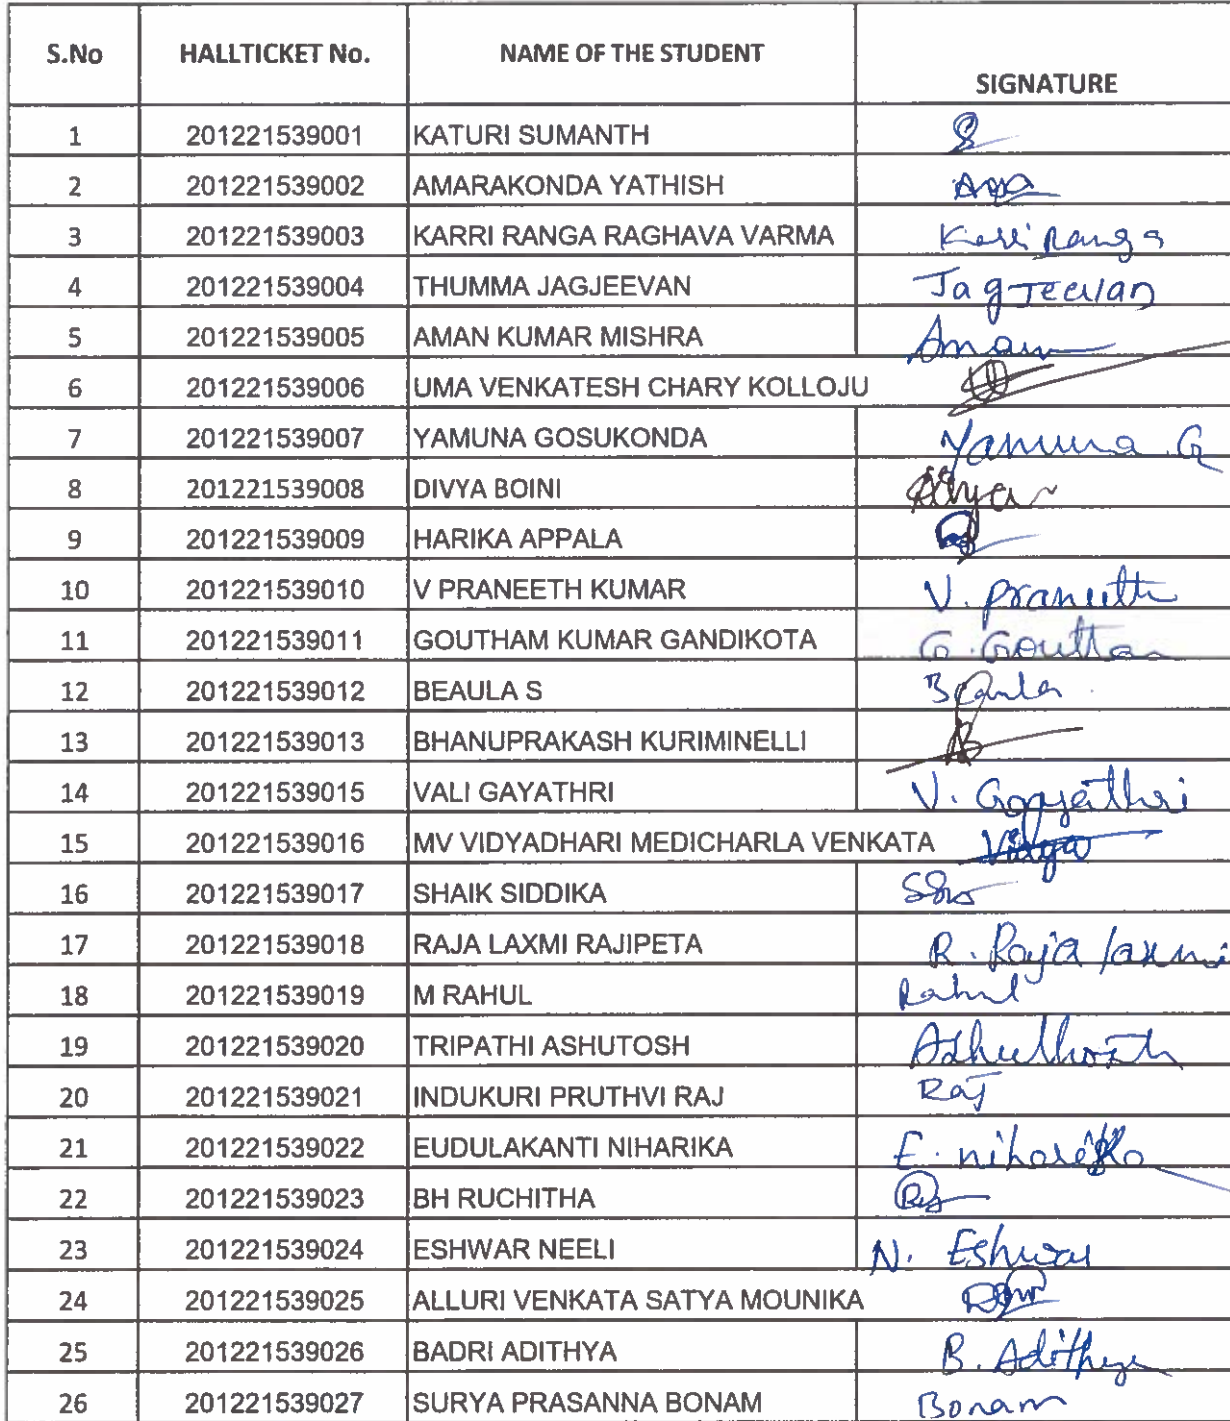 S.No HALLTICKET No. NAME OF THE STUDENT SIGNATURE
1 201221539001 KATURI SUMANTH
2 201221539002 AMARAKONDA YATHISH
3 201221539003 KARRI RANGA RAGHAVA VARMA Karri Ranga
4 201221539004 THUMMA JAGJEEVAN JagJeevan
5 201221539005 AMAN KUMAR MISHRA Aman
6 201221539006 UMA VENKATESH CHARY KOLLOJU
7 201221539007 YAMUNA GOSUKONDA Yamuna G
8 201221539008 DIVYA BOINI
9 201221539009 HARIKA APPALA
10 201221539010 V PRANEETH KUMAR V. Praneeth
11 201221539011 GOUTHAM KUMAR GANDIKOTA G. Goutham
12 201221539012 BEAULA S Beaula
13 201221539013 BHANUPRAKASH KURIMINELLI
14 201221539015 VALI GAYATHRI V. Gayathri
15 201221539016 MV VIDYADHARI MEDICHARLA VENKATA Vidya
16 201221539017 SHAIK SIDDIKA
17 201221539018 RAJA LAXMI RAJIPETA R. Raja laxmi
18 201221539019 M RAHUL Rahul
19 201221539020 TRIPATHI ASHUTOSH
20 201221539021 INDUKURI PRUTHVI RAJ Raj
21 201221539022 EUDULAKANTI NIHARIKA E. niharika
22 201221539023 BH RUCHITHA
23 201221539024 ESHWAR NEELI N. Eshwar
24 201221539025 ALLURI VENKATA SATYA MOUNIKA
25 201221539026 BADRI ADITHYA B. Adithya
26 201221539027 SURYA PRASANNA BONAM Bonam